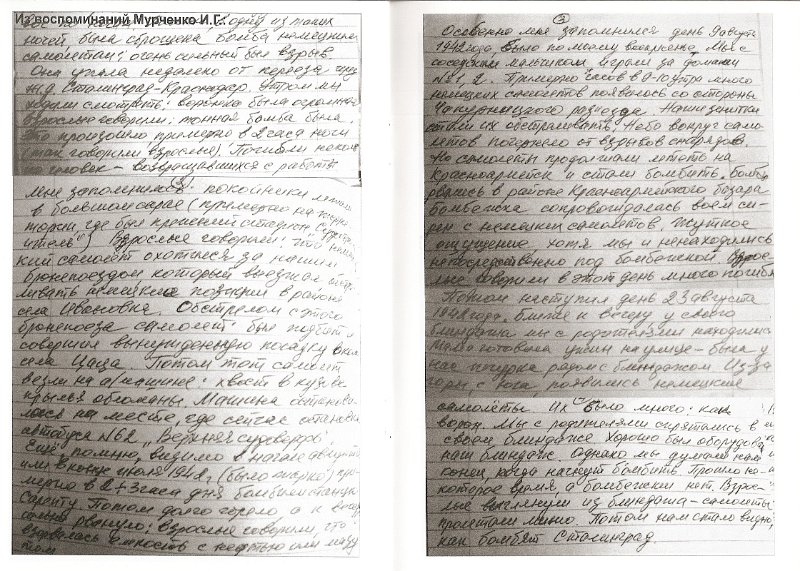 Из воспоминаний Мурченко И.Г.
одну из таких
ночей была сброшена бомба немецким
самолетом: очень сильный был взрыв.
Она упала недалеко от переезда
ж.д. Сталинград-Краснодар. Утром мы
ходили смотреть: воронка была огромная
взрослые говорили: тонная бомба была.
Это произошло примерно в 2 часа ночи
(так говорили взрослые). Погибли
человек - возвращавшихся с работы
Мне запомнились: покойники лежали
в большом сарае (примерно на
где был прежний стадион
Взрослые говорили: что
кий самолет охотился за нашим
бронепоездом который выезжал
ливать немецкие позиции в районе
села Ивановка. Обстрелом с этого
бронепоезда самолет был подбит и
совершил вынужденную посадку
села Цаца. Потом этот самолет
везли на а/машине: хвост в кузове
крылья обломаны. Машина останови-
лась на месте, где сейчас остановка
автобуса №62 „Верхняя судоверфь".
Ещё помню, видимо в начале августа
или в конце июля 1942г. (было жарко) при-
мерно в 2-3 часа дня бомбили станцию
Сарепту. Потом долго горело а к вечеру
сильно рвануло: взрослые говорили, что
взорвалась емкость с нефтью или мазу-
том
2
Особенно мне запомнился день 9 августа
1942 года, было по моему воскресенье. Мы с
соседским мальчиком играли за домами
№1, 2. Примерно часов в 9-10 утра много
немецких самолетов появилось со стороны
Чапурницкого разъезда. Наши зенитки
стали их обстреливать. Небо вокруг само-
летов почернело от взрывов снарядов.
Но самолеты продолжали лететь на
Красноармейск и стали бомбить. Бомбы
рвались в районе Красноармейского базара.
Бомбежка сопровождалась воем си-
рен с немецких самолетов. Жуткое
ощущение хотя мы и не находились
непосредственно под бомбежкой. Взрос-
лые говорили в этот день много погибло
Потом наступил день 23 августа
1942 года. Ближе к вечеру у своего
блиндажа мы с родителями находились
Мама готовила ужин на улице - была у
нас печурка рядом с блиндажом. Из-за
горы, с юга, появились немецкие
самолеты. Их было много: как
ворон. Мы с родителями спрятались в
своем блиндаже. Хорошо был оборудован
наш блиндаж. Однако мы думали нам
конец, когда начнут бомбить. Прошло не-
которое время, а бомбежки нет. Взрос-
лые выглянули из блиндажа - самолеты
пролетали мимо. Потом нам стало видно,
как бомбят Сталинград.